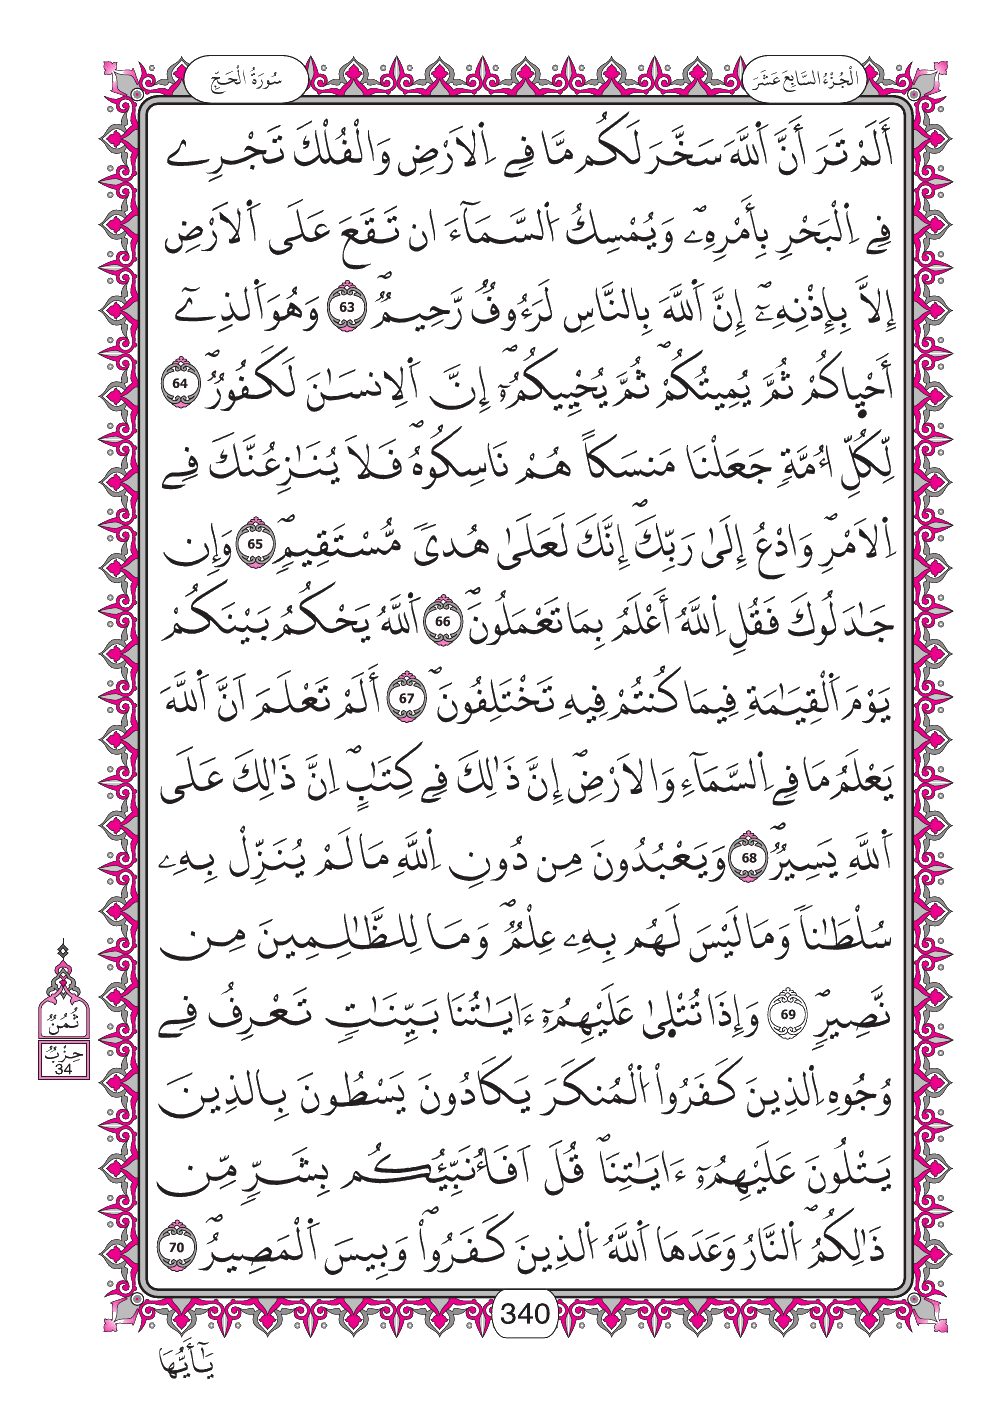 الْجُزْءُ السَّابِعَ عَشَرَ
سُورَةُ الْحَجِّ
أَلَمْ تَرَ أَنَّ اَ۬للَّهَ سَخَّرَ لَكُم مَّا فِے اِ۬لَارْضِ وَالْفُلْكَ تَجْرِے
فِے اِ۬لْبَحْرِ بِأَمْرِهِۦۖ وَيُمْسِكُ اُ۬لسَّمَآءَ ان تَقَعَ عَلَى اَ۬لَارْضِ
إِلَّا بِإِذْنِهِۦٓۖ إِنَّ اَ۬للَّهَ بِالنَّاسِ لَرَءُوفٞ رَّحِيمٞۖ 63 وَهُوَ اَ۬لذِےٓ
أَحْي۪اكُمْ ثُمَّ يُمِيتُكُمْۖ ثُمَّ يُحْيِيكُمُۥٓۖ إِنَّ اَ۬لِانسَٰنَ لَكَفُورٞۖ 64
لِّكُلِّ أُمَّةٖ جَعَلْنَا مَنسَكاً هُمْ نَاسِكُوهُۖ فَلَا يُنَٰزِعُنَّكَ فِے
اِ۬لَامْرِۖ وَادْعُ إِلَىٰ رَبِّكَۖ إِنَّكَ لَعَلَىٰ هُدىٗ مُّسْتَقِيمٖۖ 65 وَإِن
جَٰدَلُوكَ فَقُلِ اِ۬للَّهُ أَعْلَمُ بِمَا تَعْمَلُونَۖ 66 اَ۬للَّهُ يَحْكُمُ بَيْنَكُمْ
يَوْمَ اَ۬لْقِيَٰمَةِ فِيمَا كُنتُمْ فِيهِ تَخْتَلِفُونَۖ 67 أَلَمْ تَعْلَمَ اَنَّ اَ۬للَّهَ
يَعْلَمُ مَا فِے اِ۬لسَّمَآءِ وَالَارْضِۖ إِنَّ ذَٰلِكَ فِے كِتَٰبٍۖ اِنَّ ذَٰلِكَ عَلَى
اَ۬للَّهِ يَسِيرٞۖ 68 وَيَعْبُدُونَ مِن دُونِ اِ۬للَّهِ مَا لَمْ يُنَزِّلْ بِهِۦ
سُلْطَٰناٗ وَمَا لَيْسَ لَهُم بِهِۦ عِلْمٞۖ وَمَا لِلظَّٰلِمِينَ مِن
نَّصِيرٖۖ 69 وَإِذَا تُتْل۪ىٰ عَلَيْهِمُۥٓ ءَايَٰتُنَا بَيِّنَٰتٖ تَعْرِفُ فِے
وُجُوهِ اِ۬لذِينَ كَفَرُواْ اُ۬لْمُنكَرَ يَكَادُونَ يَسْطُونَ بِالذِينَ
يَتْلُونَ عَلَيْهِمُۥٓ ءَايَٰتِنَاۖ قُلَ اَفَأُنَبِّئُكُم بِشَرّٖ مِّن
ذَٰلِكُمُۖ اُ۬لنَّارُ وَعَدَهَا اَ۬للَّهُ اُ۬لذِينَ كَفَرُواْۖ وَبِيسَ اَ۬لْمَصِيرُۖ 70
ثُمُنٌ
حِزْبٌ
34
340
يَٰٓأَيُّهَا